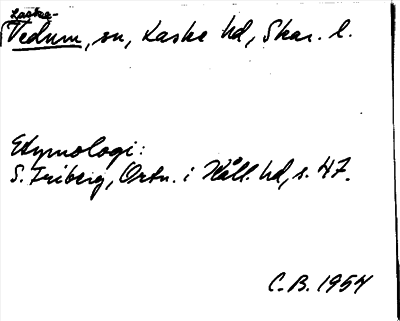 Laske-
Vedum, sn, Laske hd, Skar. l.
Etymologi:
S. Friberg, Ortn. i Kåll. hd, s. 47.
C.B. 1954